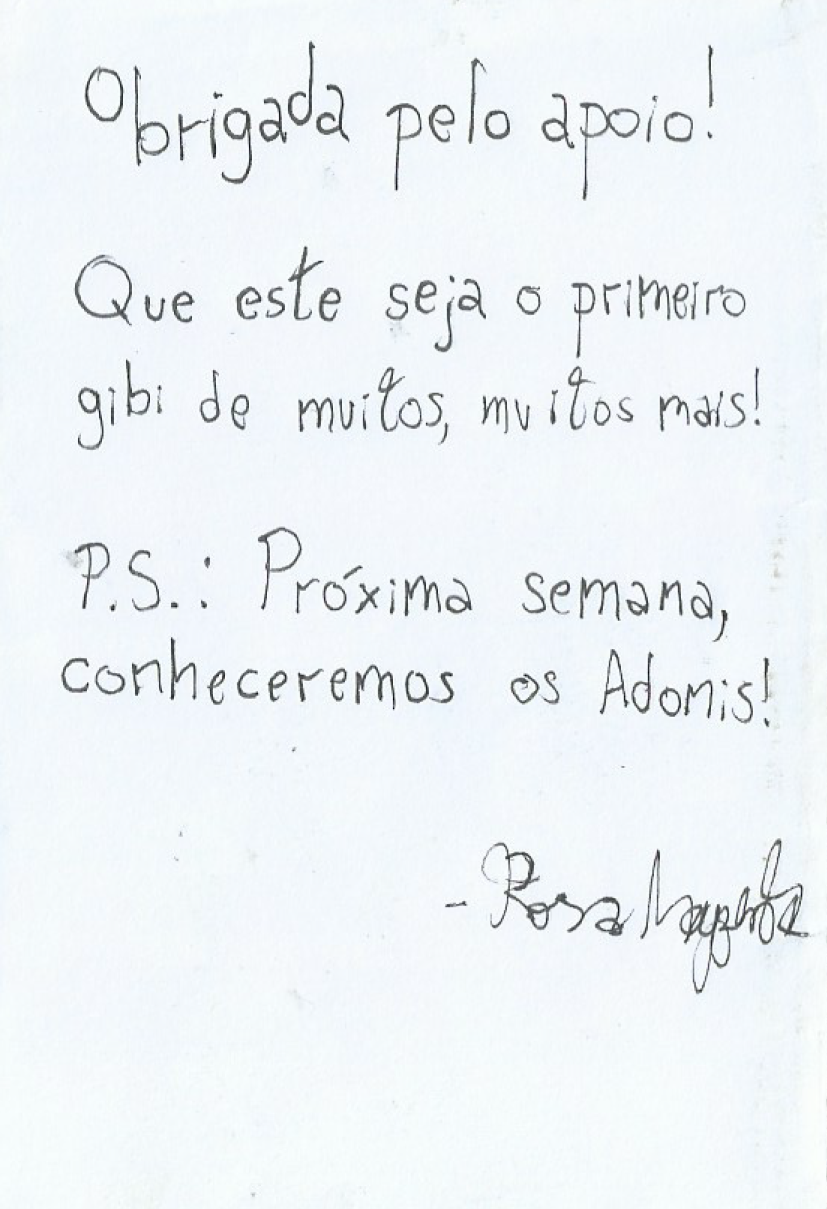 Obrigada pelo apoio!
Que este seja o primeiro
gibi de muitos, muitos mais!
P.S.: Próxima semana,
conheceremos os Adomis!
- Rosa